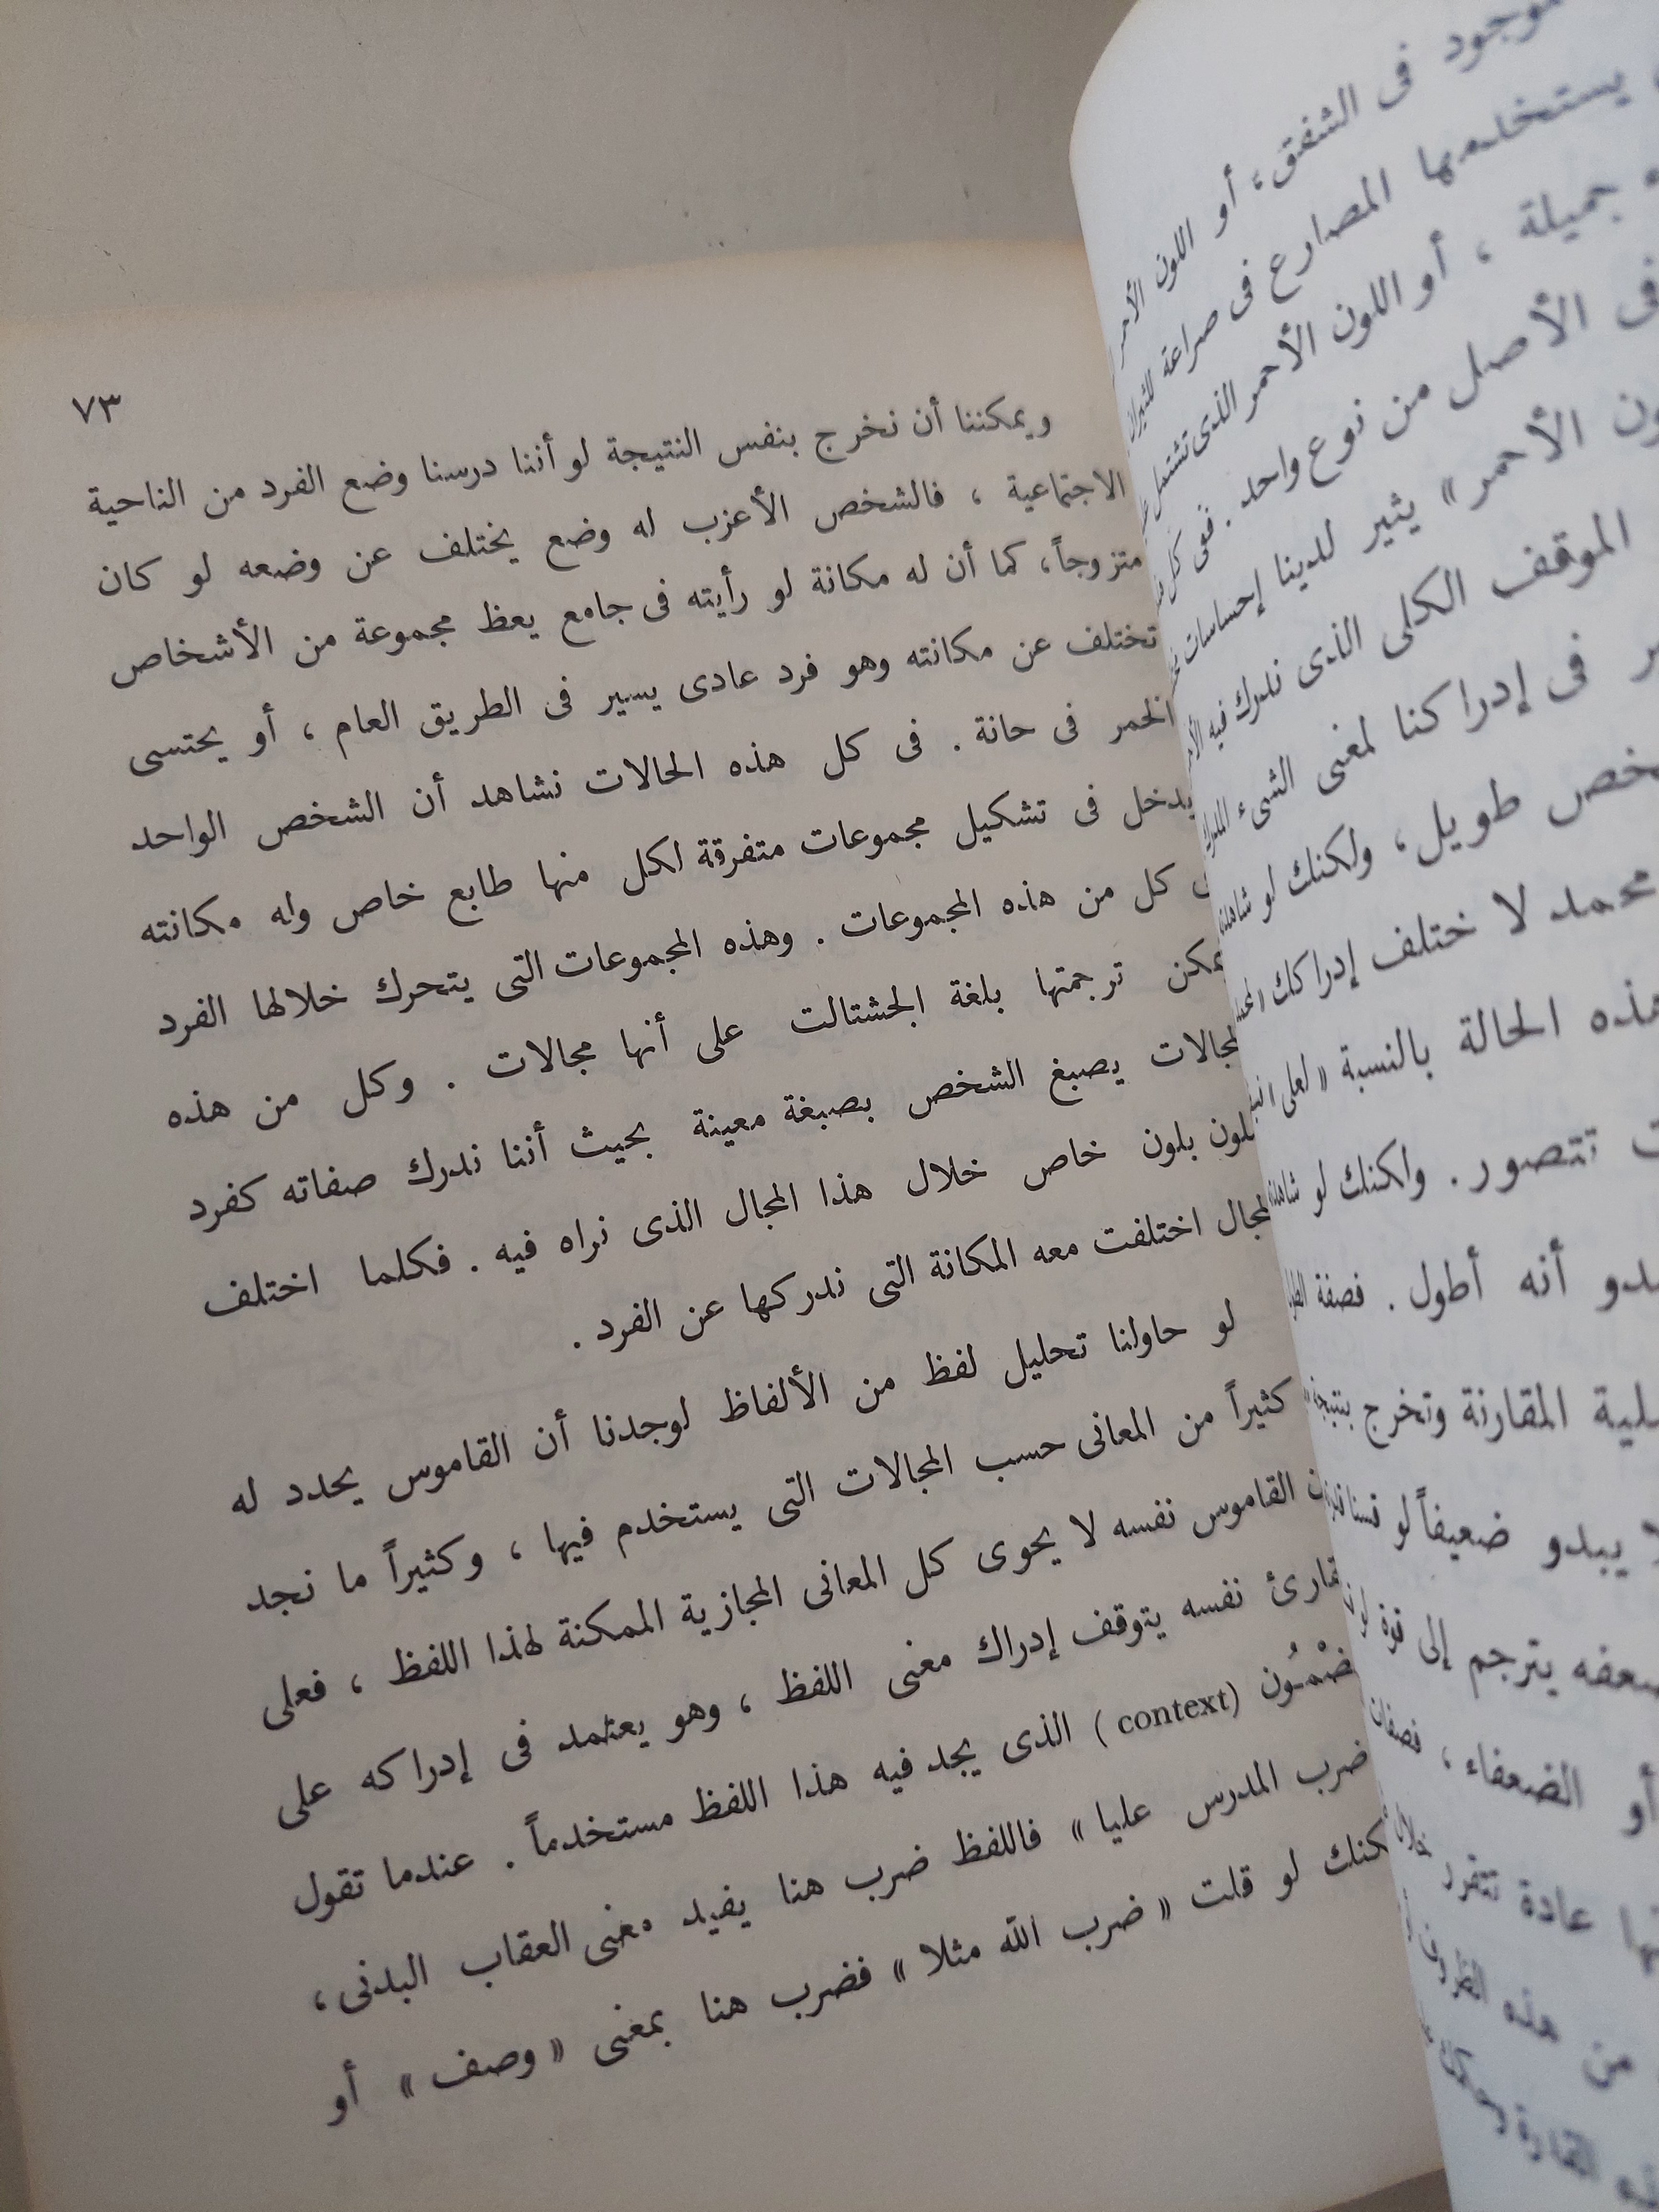 ٧٣
ويمكننا أن نخرج بنفس النتيجة لو أننا درسنا وضع الفرد من الناحية
الاجتماعية ، فالشخص الأعزب له وضع يختلف عن وضعه لو كان
متزوجاً، كما أن له مكانة لو رأيته فى جامع يعظ مجموعة من الأشخاص
تختلف عن مكانته وهو فرد عادى يسير فى الطريق العام ، أو يحتسى
الخمر فى حانة . فى كل هذه الحالات نشاهد أن الشخص الواحد
يدخل فى تشكيل مجموعات متفرقة لكل منها طابع خاص وله مكانته
كل من هذه المجموعات . وهذه المجموعات التى يتحرك خلالها الفرد
يمكن ترجمتها بلغة الجشتالت على أنها مجالات . وكل من هذه
المجالات يصبغ الشخص بصبغة معينة بحيث أننا ندرك صفاته كفرد
بلون خاص خلال هذا المجال الذى نراه فيه . فكلما اختلف
المجال اختلفت معه المكانة التى ندركها عن الفرد .
لو حاولنا تحليل لفظ من الألفاظ لوجدنا أن القاموس يحدد له
كثيراً من المعانى حسب المجالات التى يستخدم فيها ، وكثيراً ما نجد
القاموس نفسه لا يحوى كل المعانى المجازية الممكنة لهذا اللفظ ، فعلى
القارئ نفسه يتوقف إدراك معنى اللفظ ، وهو يعتمد فى إدراكه على
(context) الذى يجد فيه هذا اللفظ مستخدماً . عندما تقول
ضرب المدرس عليا » فاللفظ ضرب هنا يفيد معنى العقاب البدنى ،
لو قلت « ضرب الله مثلا » فضرب هنا بمعنى « وصف » أو
فى الشفق ، أو اللون الأحمر
يستخدمها المصارع فى صراعة الثيران
جميلة ، أو اللون الأحمر الذى تشتمل
فى الأصل من نوع واحد . ففى كل
الأحمر » يثير لدينا إحساسات
الموقف الكلى الذى ندرك فيه
فى إدراكنا لمعنى الشىء المدرك
طويل ، ولكنك لو شاهدت
محمد لا ختلف إدراكك
هذه الحالة بالنسبة « لعلى
تتصور . ولكنك لو شاهدت
أنه أطول . فصفة الطول
المقارنة وتخرج بنتيجة
لا يبدو ضعيفاً لو قسنا
يترجم إلى قوة لو
أو الضعفاء ، فصفات
عادة تتقرر خلال
من هذه الظروف